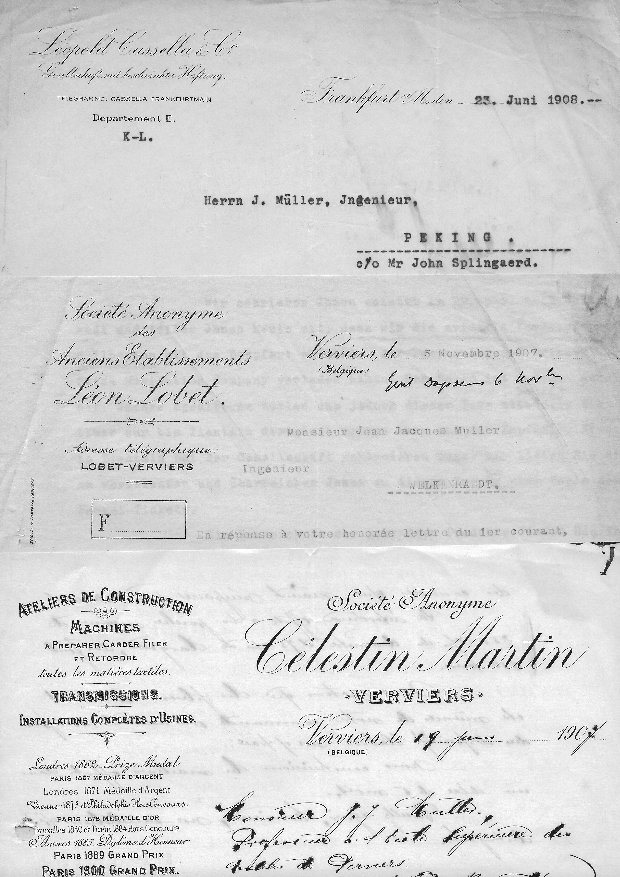 Leopold Cassella & Co
Gesellschaft mit beschränkter Haftung.
TELEGRAMME: CASSELLA FRANKFURTMAIN
Departement E.
K-L.
Frankfurt a/Main 23. Juni 1908.--
Herrn J. Müller, Jngenieur,
PEKING.
c/o Mr John Splingaerd.
Société Anonyme
des
Anciens Etablissements
Léon Lobet.
Adresse télégraphique:
LOBET-VERVIERS
F
Verviers, le 5 Novembre 1907.
(Belgique)
6 Nov
Monsieur Jean Jacques Muller
Ingénieur
WELKENRAEDT.
En réponse à votre honorée lettre du 1er courant,
ATELIERS DE CONSTRUCTION
MACHINES
A PRÉPARER, CARDER FILER
ET RETORDRE
toutes les matières textiles.
TRANSMISSIONS.
INSTALLATIONS COMPLÈTES D'USINES.
Londres 1862 Prize Medal
PARIS 1867 MÉDAILLE D'ARGENT
Londres 1871 Médaille d'Argent
Vienne 1873 et Philadelphie Hors Concours
PARIS 1878 MÉDAILLE D'OR
Anvers 1885 Diplôme d'Honneur
PARIS 1889 GRAND PRIX
PARIS 1900 GRAND PRIX.
Société Anonyme
Célestin Martin
VERVIERS
Verviers, le 19 juin 1907
(BELGIQUE)
Monsieur J. J. Muller,
Professeur à l'Ecole Supérieure des
Textiles de Verviers